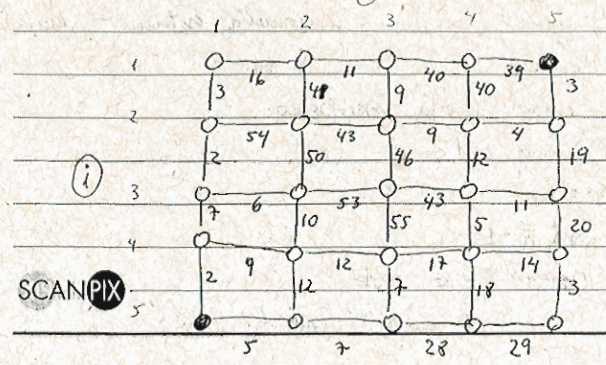 1 2 3 4 5
1
16 11 40 39
3 48 9 40 3
2
54 43 9 4
2 50 46 12 19
i
3
6 53 43 11
7 10 55 5 20
4
9 12 17 14
2 12 7 18 3
SCANPIX
5
5 7 28 29